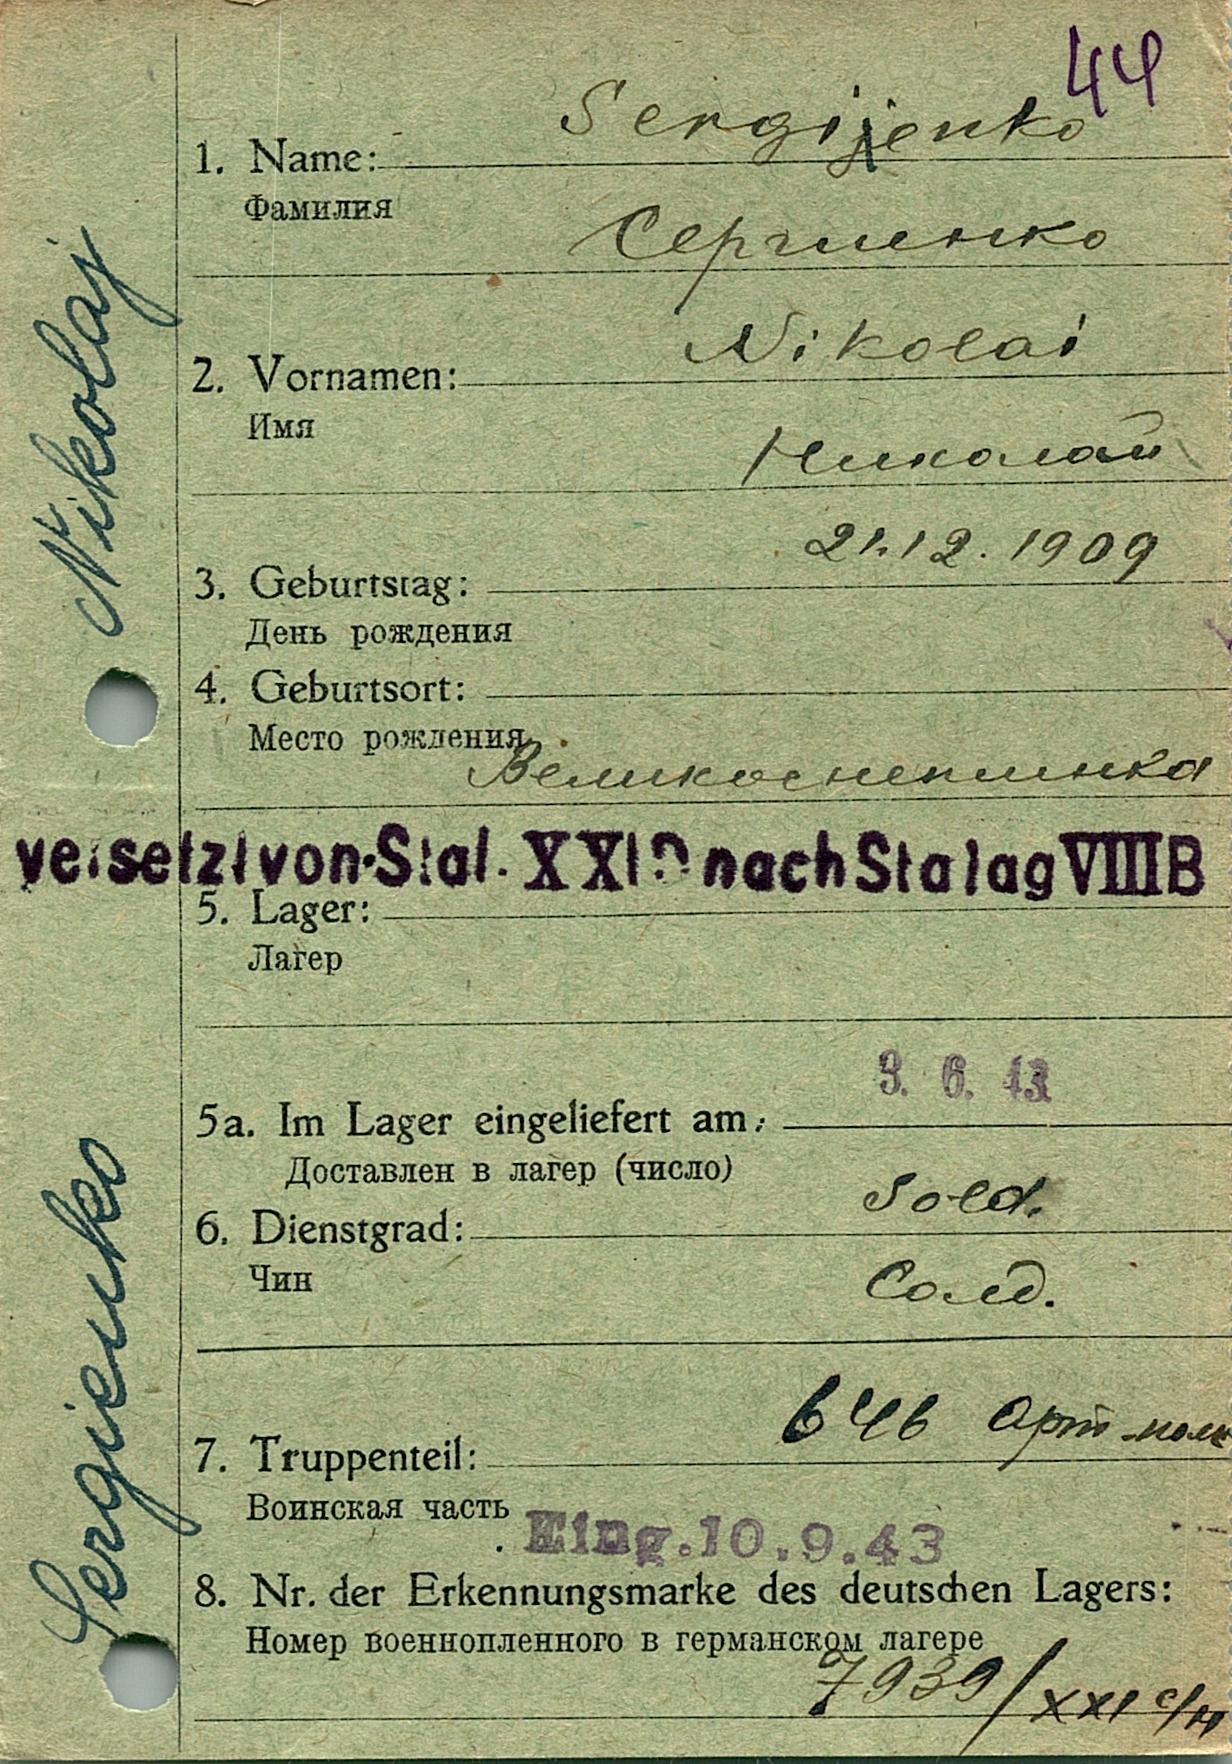 44
Sergijenko
1. Name:
Фамилия
Сергиенко
Nikolai
2. Vornamen:
Имя
Николай
21.12.1909
3. Geburtstag:
День рождения
4. Geburtsort:
Место рождения
versetzt von Stal. XXI nach Stalag VIIIB
5. Lager:
Лагер
3. 6. 43
5a. Im Lager eingeliefert am:
Доставлен в лагер (число)
Sold.
6. Dienstgrad:
Чин
Солд.
646 Арт-полк
7. Truppenteil:
Воинская часть
Eing. 10.9.43
8. Nr. der Erkennungsmarke des deutschen Lagers:
Номер военнопленного в германском лагере
7939/XXI C/H
Sergienko Nikolaj